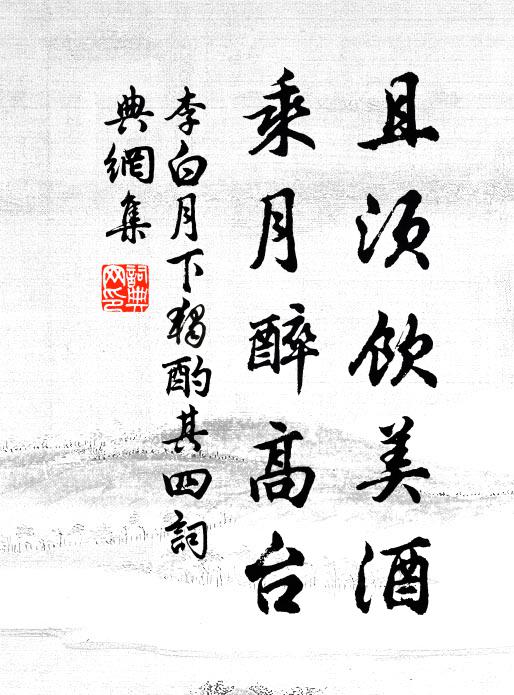 且须饮美酒
乘月醉高台
李白月下獨酌其四詞
典網集
詞典网印